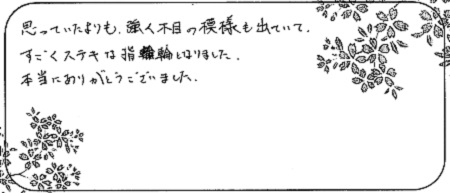 思っていたよりも、強く木目の模様も出ていて、
すごくステキな指輪となりました。
本当にありがとうございました。